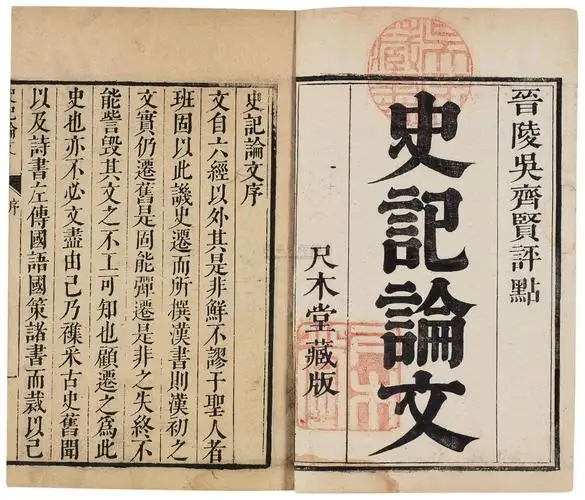 晉陵吳齊賢評點
史記論文
尺木堂藏版
史記論文序
文自六經以外其是非鮮不謬于聖人者
班固以此譏史遷而所撰漢書則漢初之
文實仍遷舊是固能彈遷是非之失終不
能訾毀其文之不工可知也顧遷之為此
史也亦不必文盡由己乃襍采古史舊聞
以及詩書左傳國語國策諸書而裁以己
序